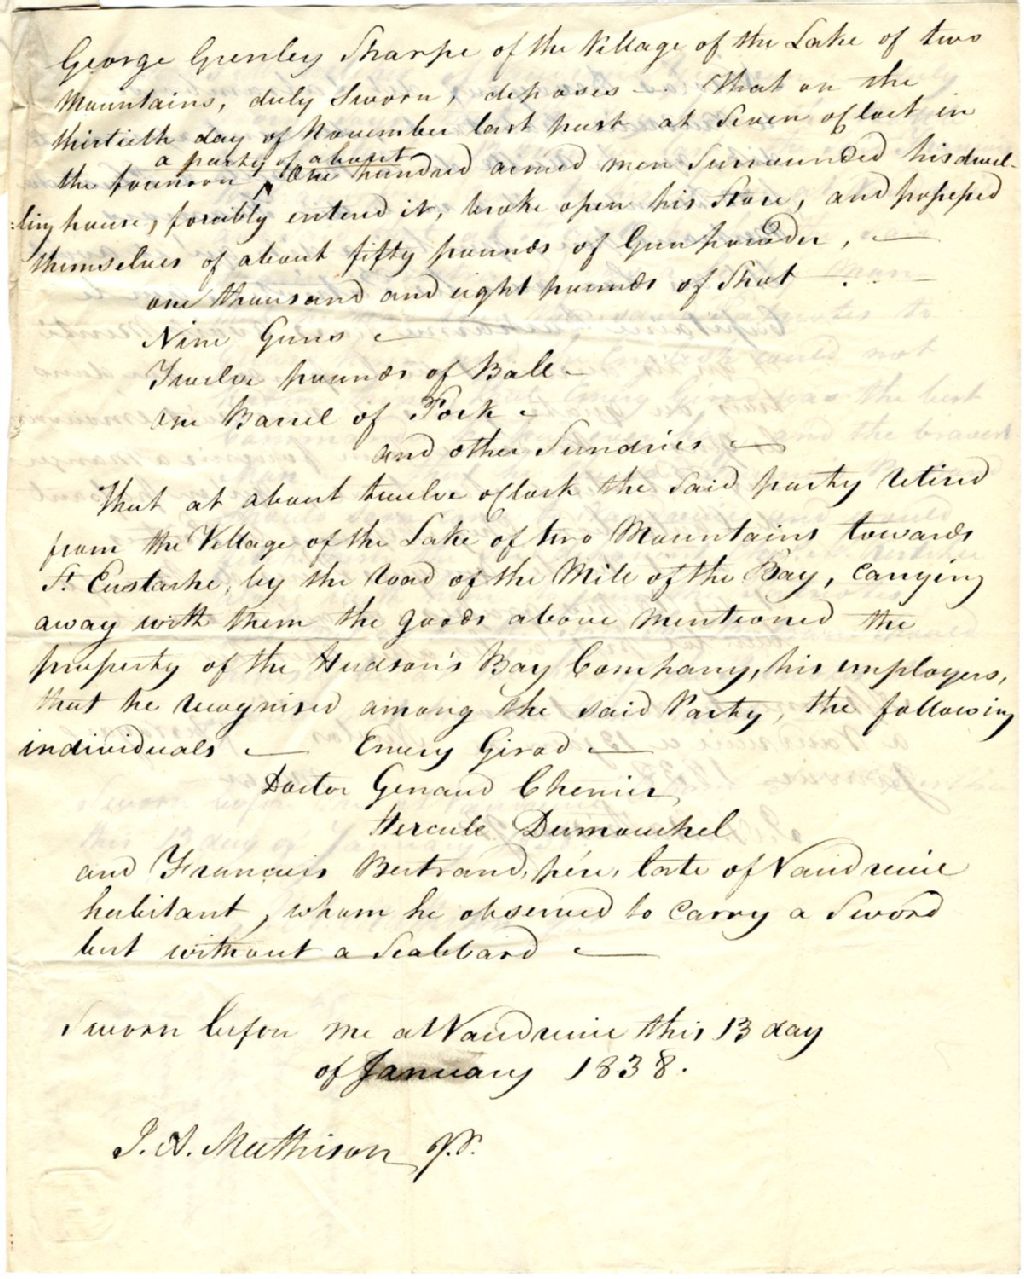 George Grenley Sharpe of the Village of the Lake of two
Mountains, duly Sworn, deposes - That on the
thirtieth day of November last past at Seven oClock in
a party of about
the forenoon ^ One hundred armed men Surrounded his dwel-
:ling house, forcibly entered it, broke open his Store, and possessed
themselves of about fifty pounds of Gunpowder, —
one thousand and eight pounds of Shot
Nine Guns —
Twelve pounds of Ball —
one Barrel of Pork —
and other Sundries —
That at about twelve oClock the Said party retired
from the Village of the Lake of two Mountains towards
St. Eustache, by the Road of the Mile of the Bay, carrying
away with them the goods above mentioned the
property of the Hudson's Bay Company, his employers,
that he recognised among the said Party, the following
individuals — Emery Girod —
Doctor Genaud Chenier
Hercule Dumouchel
and Francois Bertrand, pére, late of Vaudreuil
habitant, whom he observed to carry a Sword
but without a Scabbard —
Sworn before me at Vaudreuil this 13 day
of January 1838.
J. A. Mathison J.P.